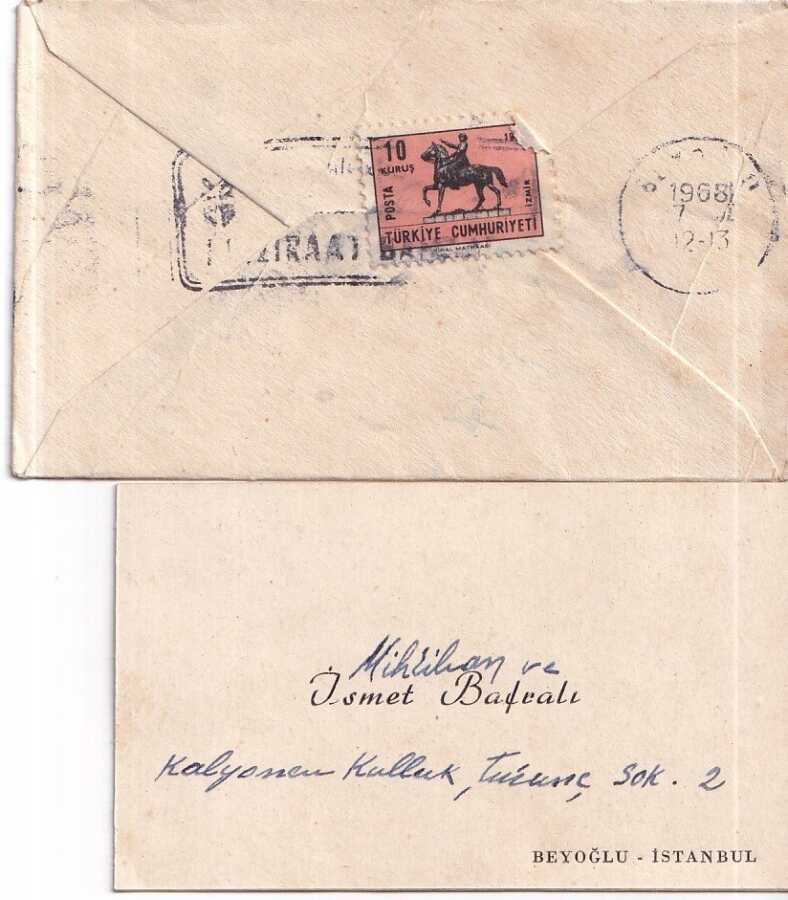 10
KURUŞ
POSTA
İZMİR
TÜRKİYE CUMHURİYETİ
ZİRAAT
1968
7
12-13
Mihriban ve
İsmet Bafralı
Kalyoncu Kulluk, Turunç Sok. 2
BEYOĞLU - İSTANBUL